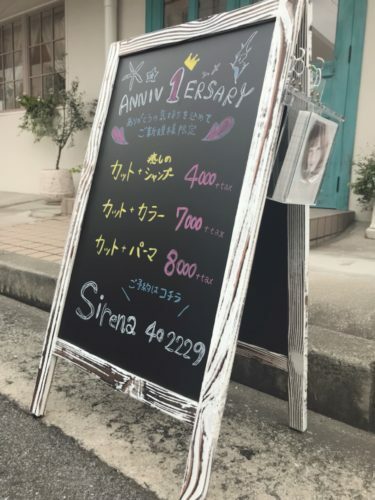 祝
ANNIV1ERSARY
ありがとうの気持ちを込めて
ご新規様限定
癒しの
カット+シャンプー 4000+tax
カット+カラー 7000+tax
カット+パーマ 8000+tax
ご予約はコチラ
Sirena 40 2229